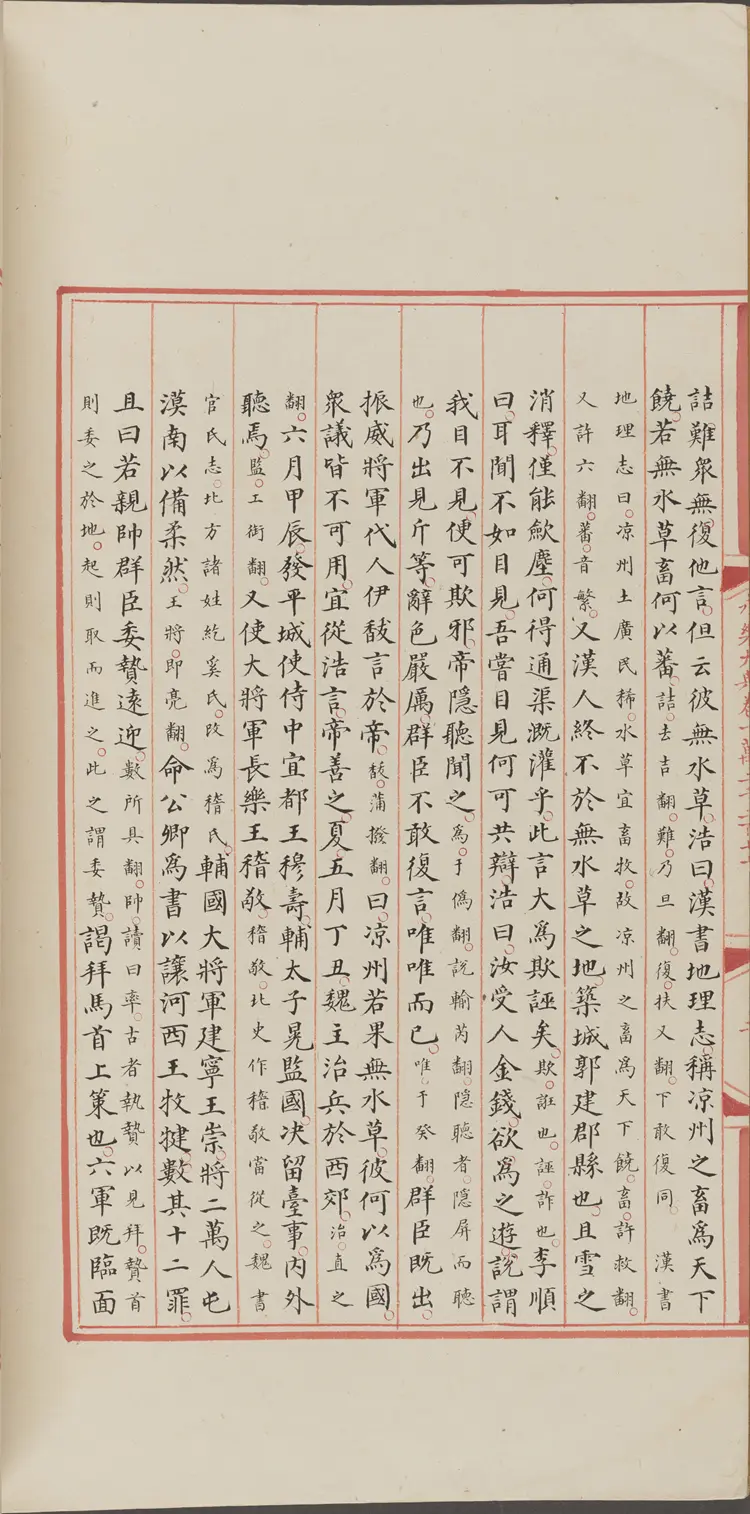 詰難衆無復他言但云彼無水草浩曰漢書地理志稱凉州之畜爲天下
饒若無水草畜何以蕃詰去吉翻難乃旦翻復扶又翻下敢復同 漢書
地理志曰凉州土廣民稀水草宜畜牧故凉州之畜爲天下饒畜許救翻
又許六翻蕃音繁又漢人終不於無水草之地築城郭建郡縣也且雪之
消釋僅能歛塵何得通渠溉灌乎此言大爲欺誣矣欺誑也誣詐也李順
曰耳聞不如目見吾嘗目見何可共辯浩曰汝受人金錢欲爲之遊說謂
我目不見便可欺邪帝隱聽聞之爲于僞翻說輸芮翻隱聽者隱屏而聽
也乃出見斤等辭色嚴厲群臣不敢復言唯唯而已唯于癸翻群臣既出
振威將軍代人伊馛言於帝馛蒲撥翻曰凉州若果無水草彼何以爲國
衆議皆不可用宜從浩言帝善之夏五月丁丑魏主治兵於西郊治直之
翻六月甲辰發平城使侍中宜都王穆壽輔太子晃監國决留臺事内外
聽焉監工銜翻又使大將軍長樂王稽敬稽敬北史作稽敬當從之魏書
官氏志北方諸姓紇奚氏改爲稽氏輔國大將軍建寧王崇將二萬人屯
漠南以備柔然王將即亮翻命公卿爲書以讓河西王牧犍數其十二罪
且曰若親帥群臣委贄遠迎數所具翻帥讀曰率古者執贄以見拜贄首
則委之於地起則取而進之此之謂委贄謁拜馬首上策也六軍既臨面